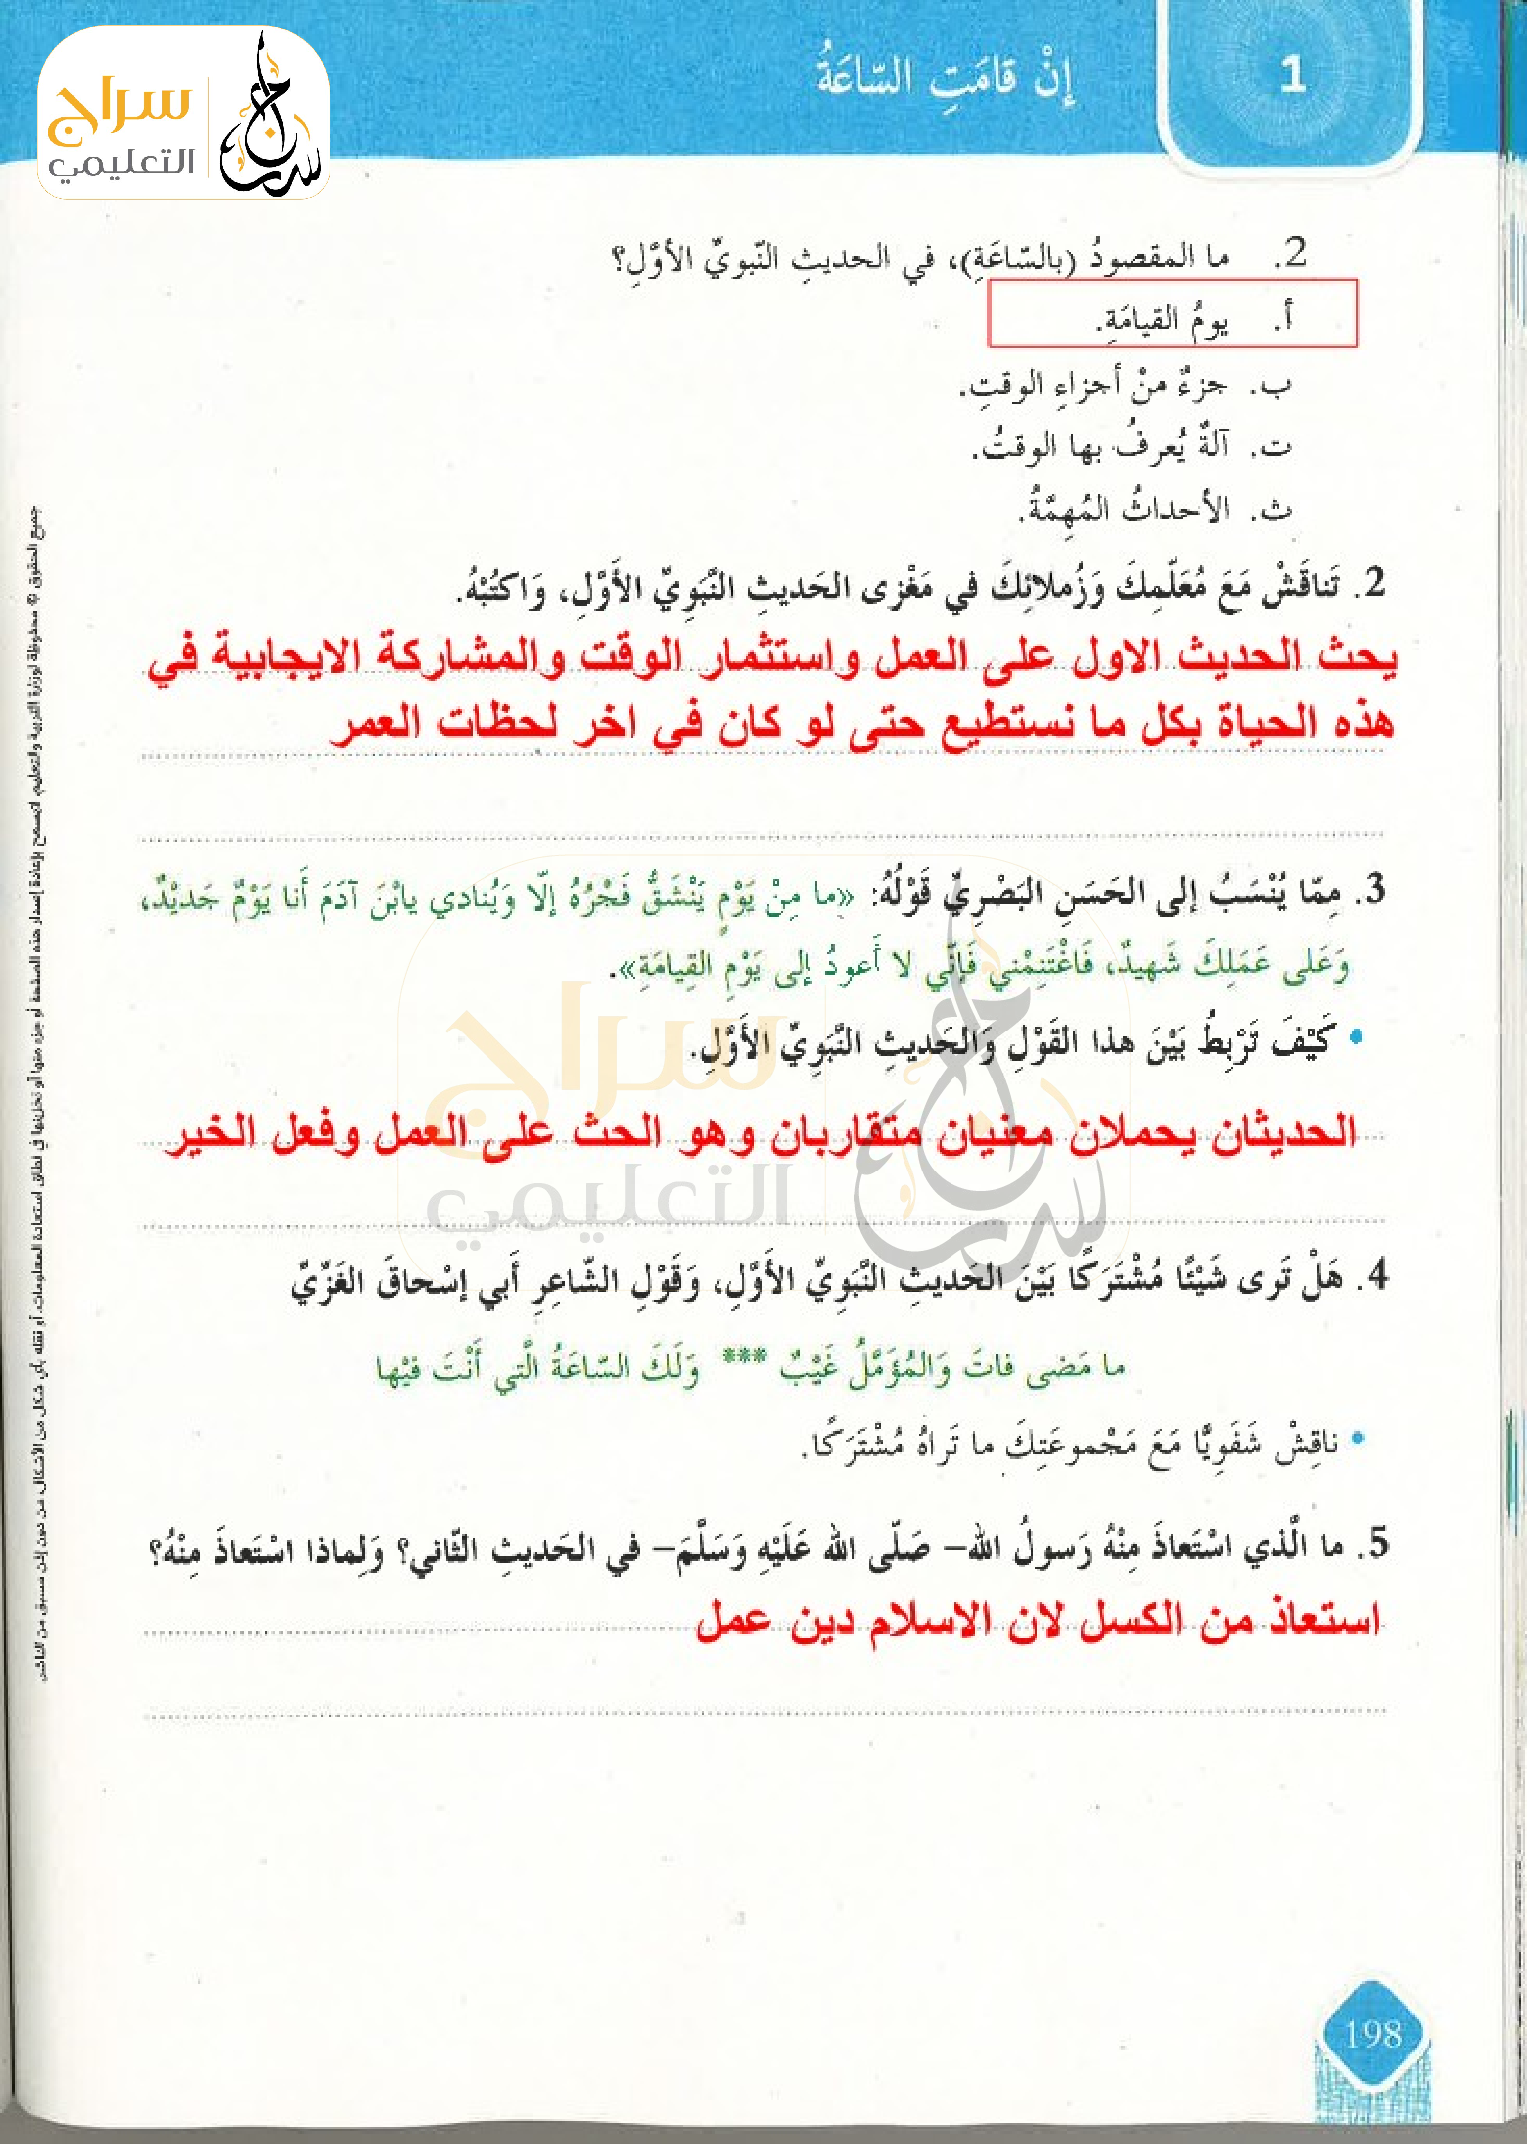 سراج
التعليمي
إنْ قامَتِ السّاعَةُ
1
2. ما المقصودُ (بالسّاعَةِ)، في الحديثِ النّبويِّ الأوّلِ؟
أ. يومُ القيامَةِ.
ب. جزءٌ منْ أجزاءِ الوقتِ.
ت. آلةٌ يُعرفُ بها الوقتُ.
ث. الأحداثُ المُهِمَّةُ.
2. تَناقَشْ مَعَ مُعَلّمِكَ وَزُملائِكَ في مَغْزى الحَديثِ النَّبَوِيِّ الأَوَّلِ، وَاكتُبْهُ.
يحث الحديث الاول على العمل واستثمار الوقت والمشاركة الايجابية في
هذه الحياة بكل ما نستطيع حتى لو كان في اخر لحظات العمر
3. مِمّا يُنْسَبُ إلى الحَسَنِ البَصْرِيِّ قَوْلُهُ: «ما مِنْ يَوْمٍ يَنْشَقُّ فَجْرُهُ إلّا وَيُنادي يابْنَ آدَمَ أَنا يَوْمٌ جَديْدٌ،
وَعَلى عَمَلِكَ شَهيدٌ، فَاغْتَنِمْني فَإنّي لا أَعودُ إلى يَوْمِ القِيامَةِ».
• كَيْفَ تَرْبِطُ بَيْنَ هذا القَوْلِ وَالحَديثِ النَّبَوِيِّ الأَوَّلِ.
الحديثان يحملان معنيان متقاربان وهو الحث على العمل وفعل الخير
سراج
التعليمي
4. هَلْ تَرى شَيْئًا مُشْتَرَكًا بَيْنَ الحَديثِ النَّبَوِيِّ الأَوَّلِ، وَقَوْلِ الشّاعِرِ أَبي إسْحاقَ الغَزّيِّ
ما مَضى فاتَ وَالمُؤَمَّلُ غَيْبٌ *** وَلَكَ السّاعَةُ الَّتي أَنْتَ فيْها
• ناقِشْ شَفَوِيًّا مَعَ مَجْموعَتِكَ ما تَراهُ مُشْتَرَكًا.
5. ما الَّذي اسْتَعاذَ مِنْهُ رَسولُ الله– صَلّى الله عَلَيْهِ وَسَلَّمَ– في الحَديثِ الثّاني؟ وَلِماذا اسْتَعاذَ مِنْهُ؟
استعاذ من الكسل لان الاسلام دين عمل
198
جميع الحقوق © محفوظة لوزارة التربية والتعليم. لا يسمح بإعادة إصدار هذه الصفحة أو جزء منها أو تخزينها في نطاق استعادة المعلومات، أو نقله بأي شكل من الأشكال، من دون إذن مسبق من الناشر.